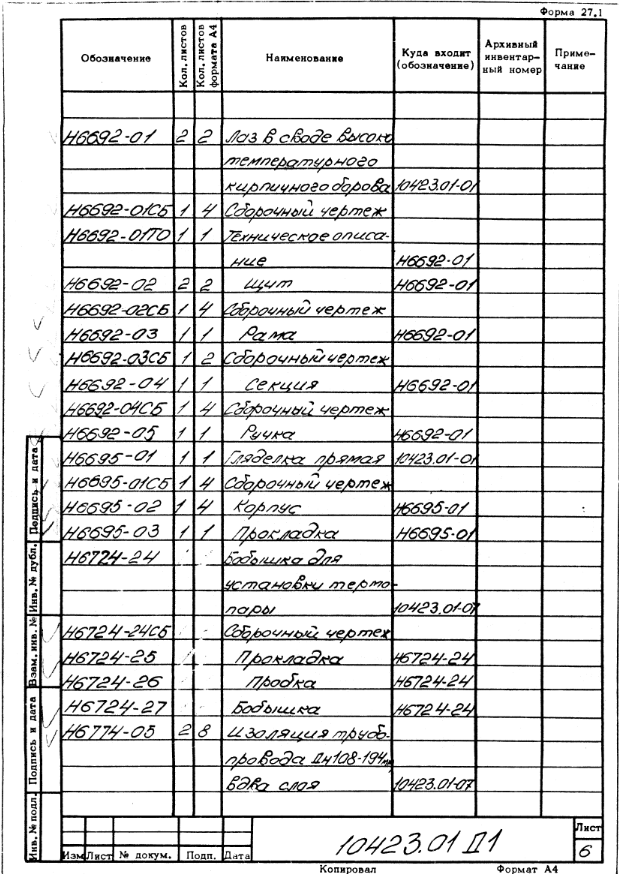 Форма 27.1
Обозначение Кол. листов Кол. листов формата А4 Наименование Куда входит (обозначение) Архивный инвентарный номер Примечание
Н6692-01 2 2 Лаз в своде высоко
температурного
кирпичного борова 10423.01-01
Н6692-01СБ 1 4 Сборочный чертеж
Н6692-01ТО 1 1 Техническое описа-
ние Н6692-01
Н6692-02 2 2 Щит Н6692-01
Н6692-02СБ 1 4 Сборочный чертеж
Н6692-03 1 1 Рама Н6692-01
Н6692-03СБ 1 2 Сборочный чертеж
Н6692-04 1 1 Секция Н6692-01
Н6692-04СБ 1 4 Сборочный чертеж
Н6692-05 1 1 Ручка Н6692-01
Н6695-01 1 1 Гляделка прямая 10423.01-01
Н6695-01СБ 1 4 Сборочный чертеж
Н6695-02 1 4 Корпус Н6695-01
Н6695-03 1 1 Прокладка Н6695-01
Н6724-24 Бобышка для
установки термо-
пары 10423.01-07
Н6724-24СБ Сборочный чертеж
Н6724-25 Прокладка Н6724-24
Н6724-26 Пробка Н6724-24
Н6724-27 Бобышка Н6724-24
Н6774-05 2 8 Изоляция трубо-
провода Дн108-194мм
в два слоя 10423.01-07
Инв. № подл. Подпись и дата Взам. инв. № Инв. № дубл. Подпись и дата
Изм Лист № докум. Подп. Дата
10423.01 Д1
Лист
6
Копировал Формат А4